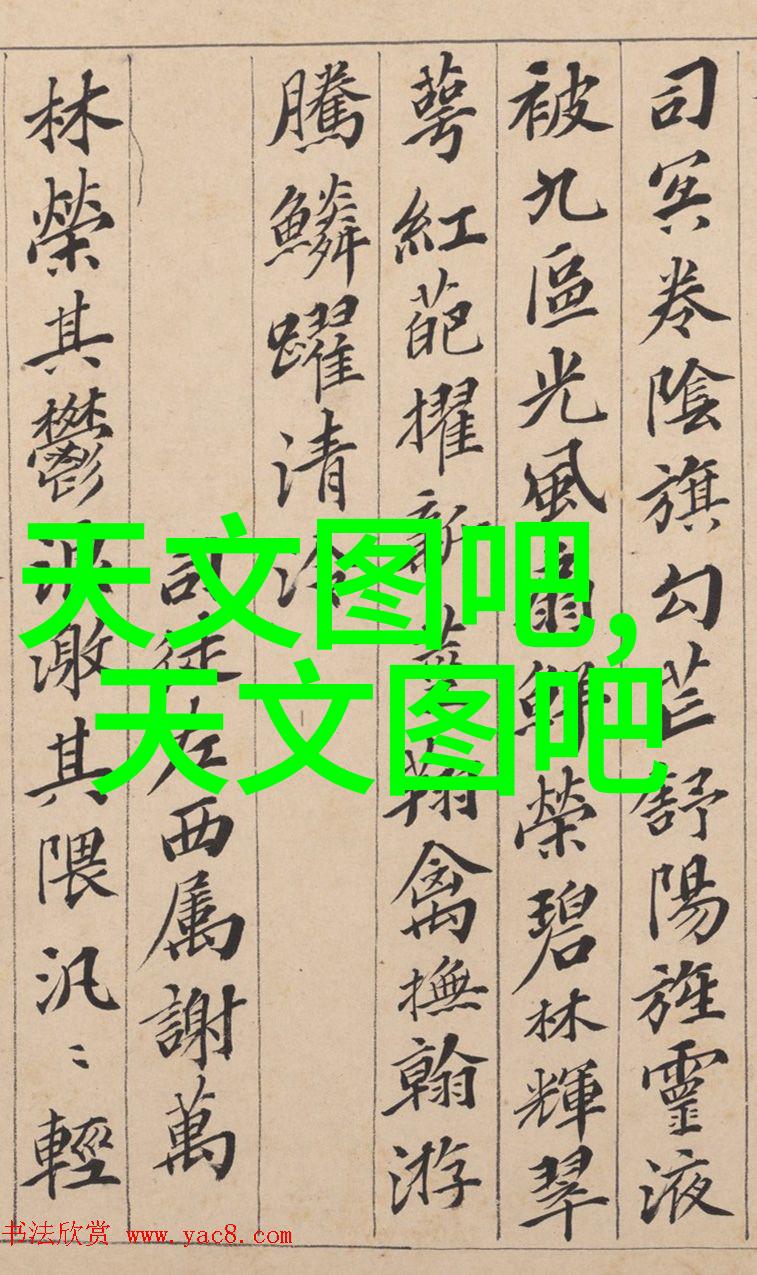 司冥卷陰旗勾芒舒陽旌靈液
被九區光風扇鮮榮碧林輝翠
萼紅葩擢新莖翔禽撫翰游
騰鱗躍清泠
司徒左西属謝萬
林榮其鬱浪激其隈汎〻輕
天文图吧,
天文图吧
书法欣赏 www.yac8.com